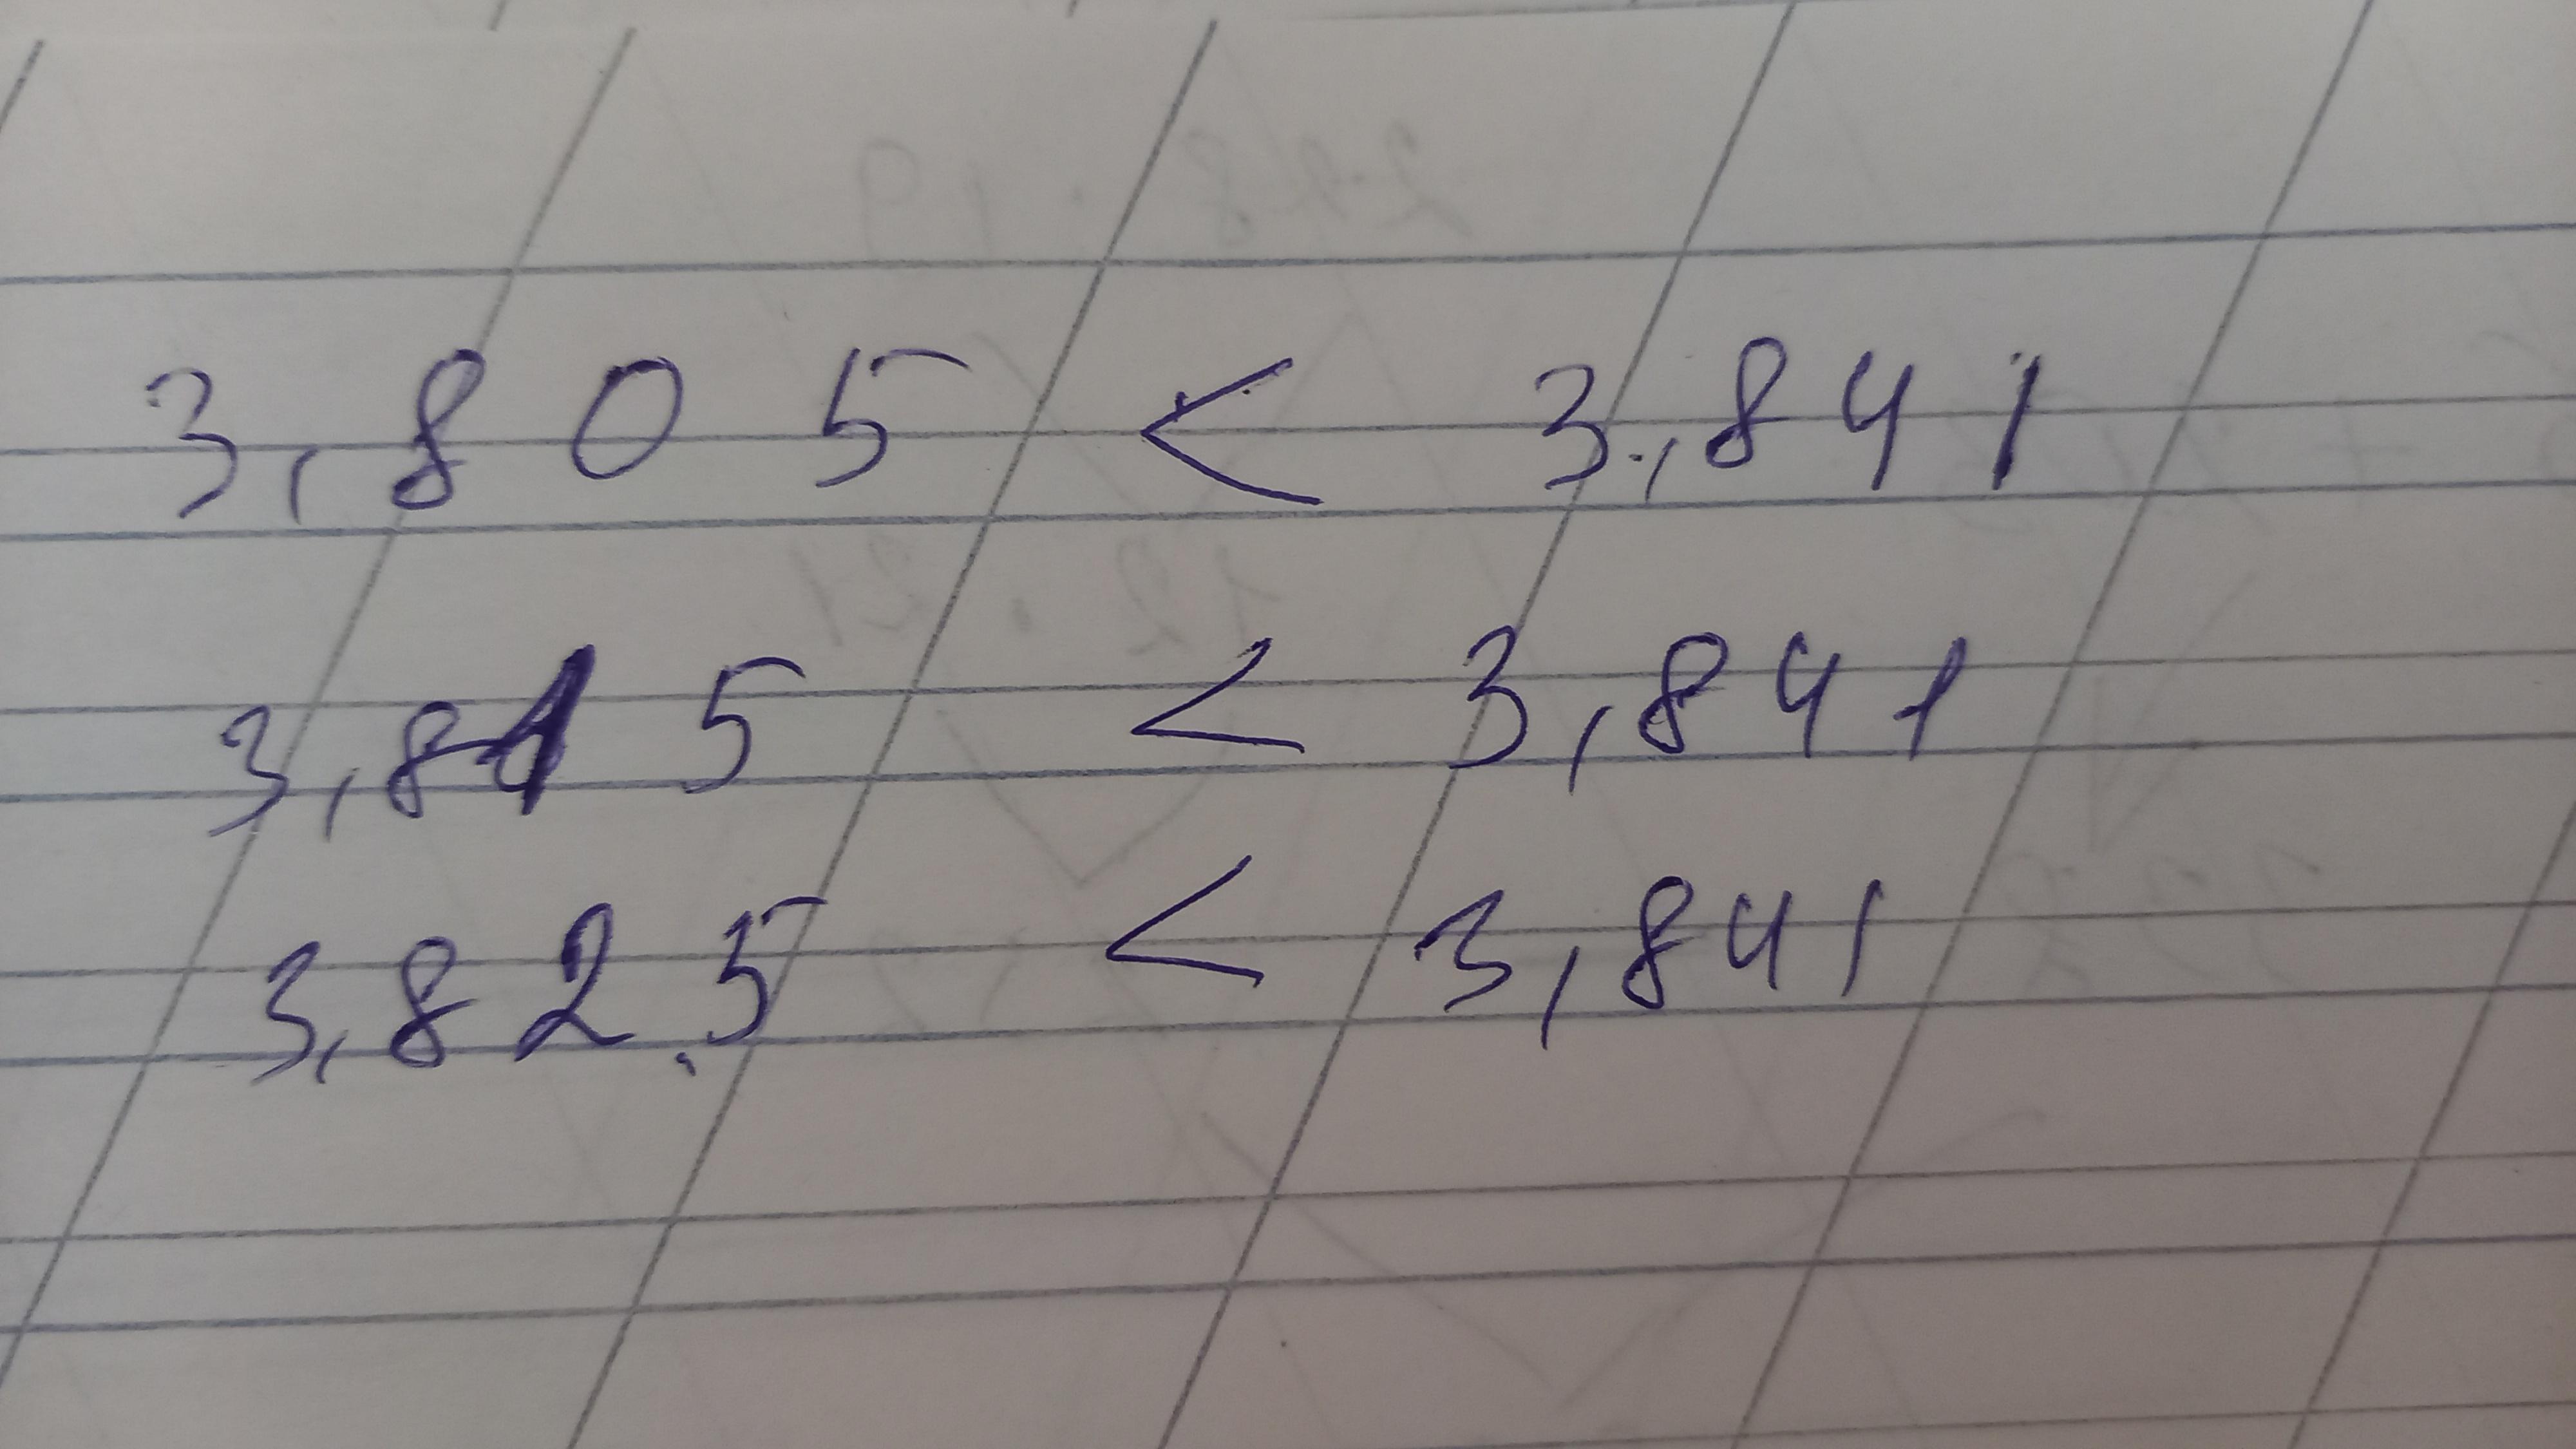 3,805 < 3,841
3,815 < 3,841
3,825 < 3,841